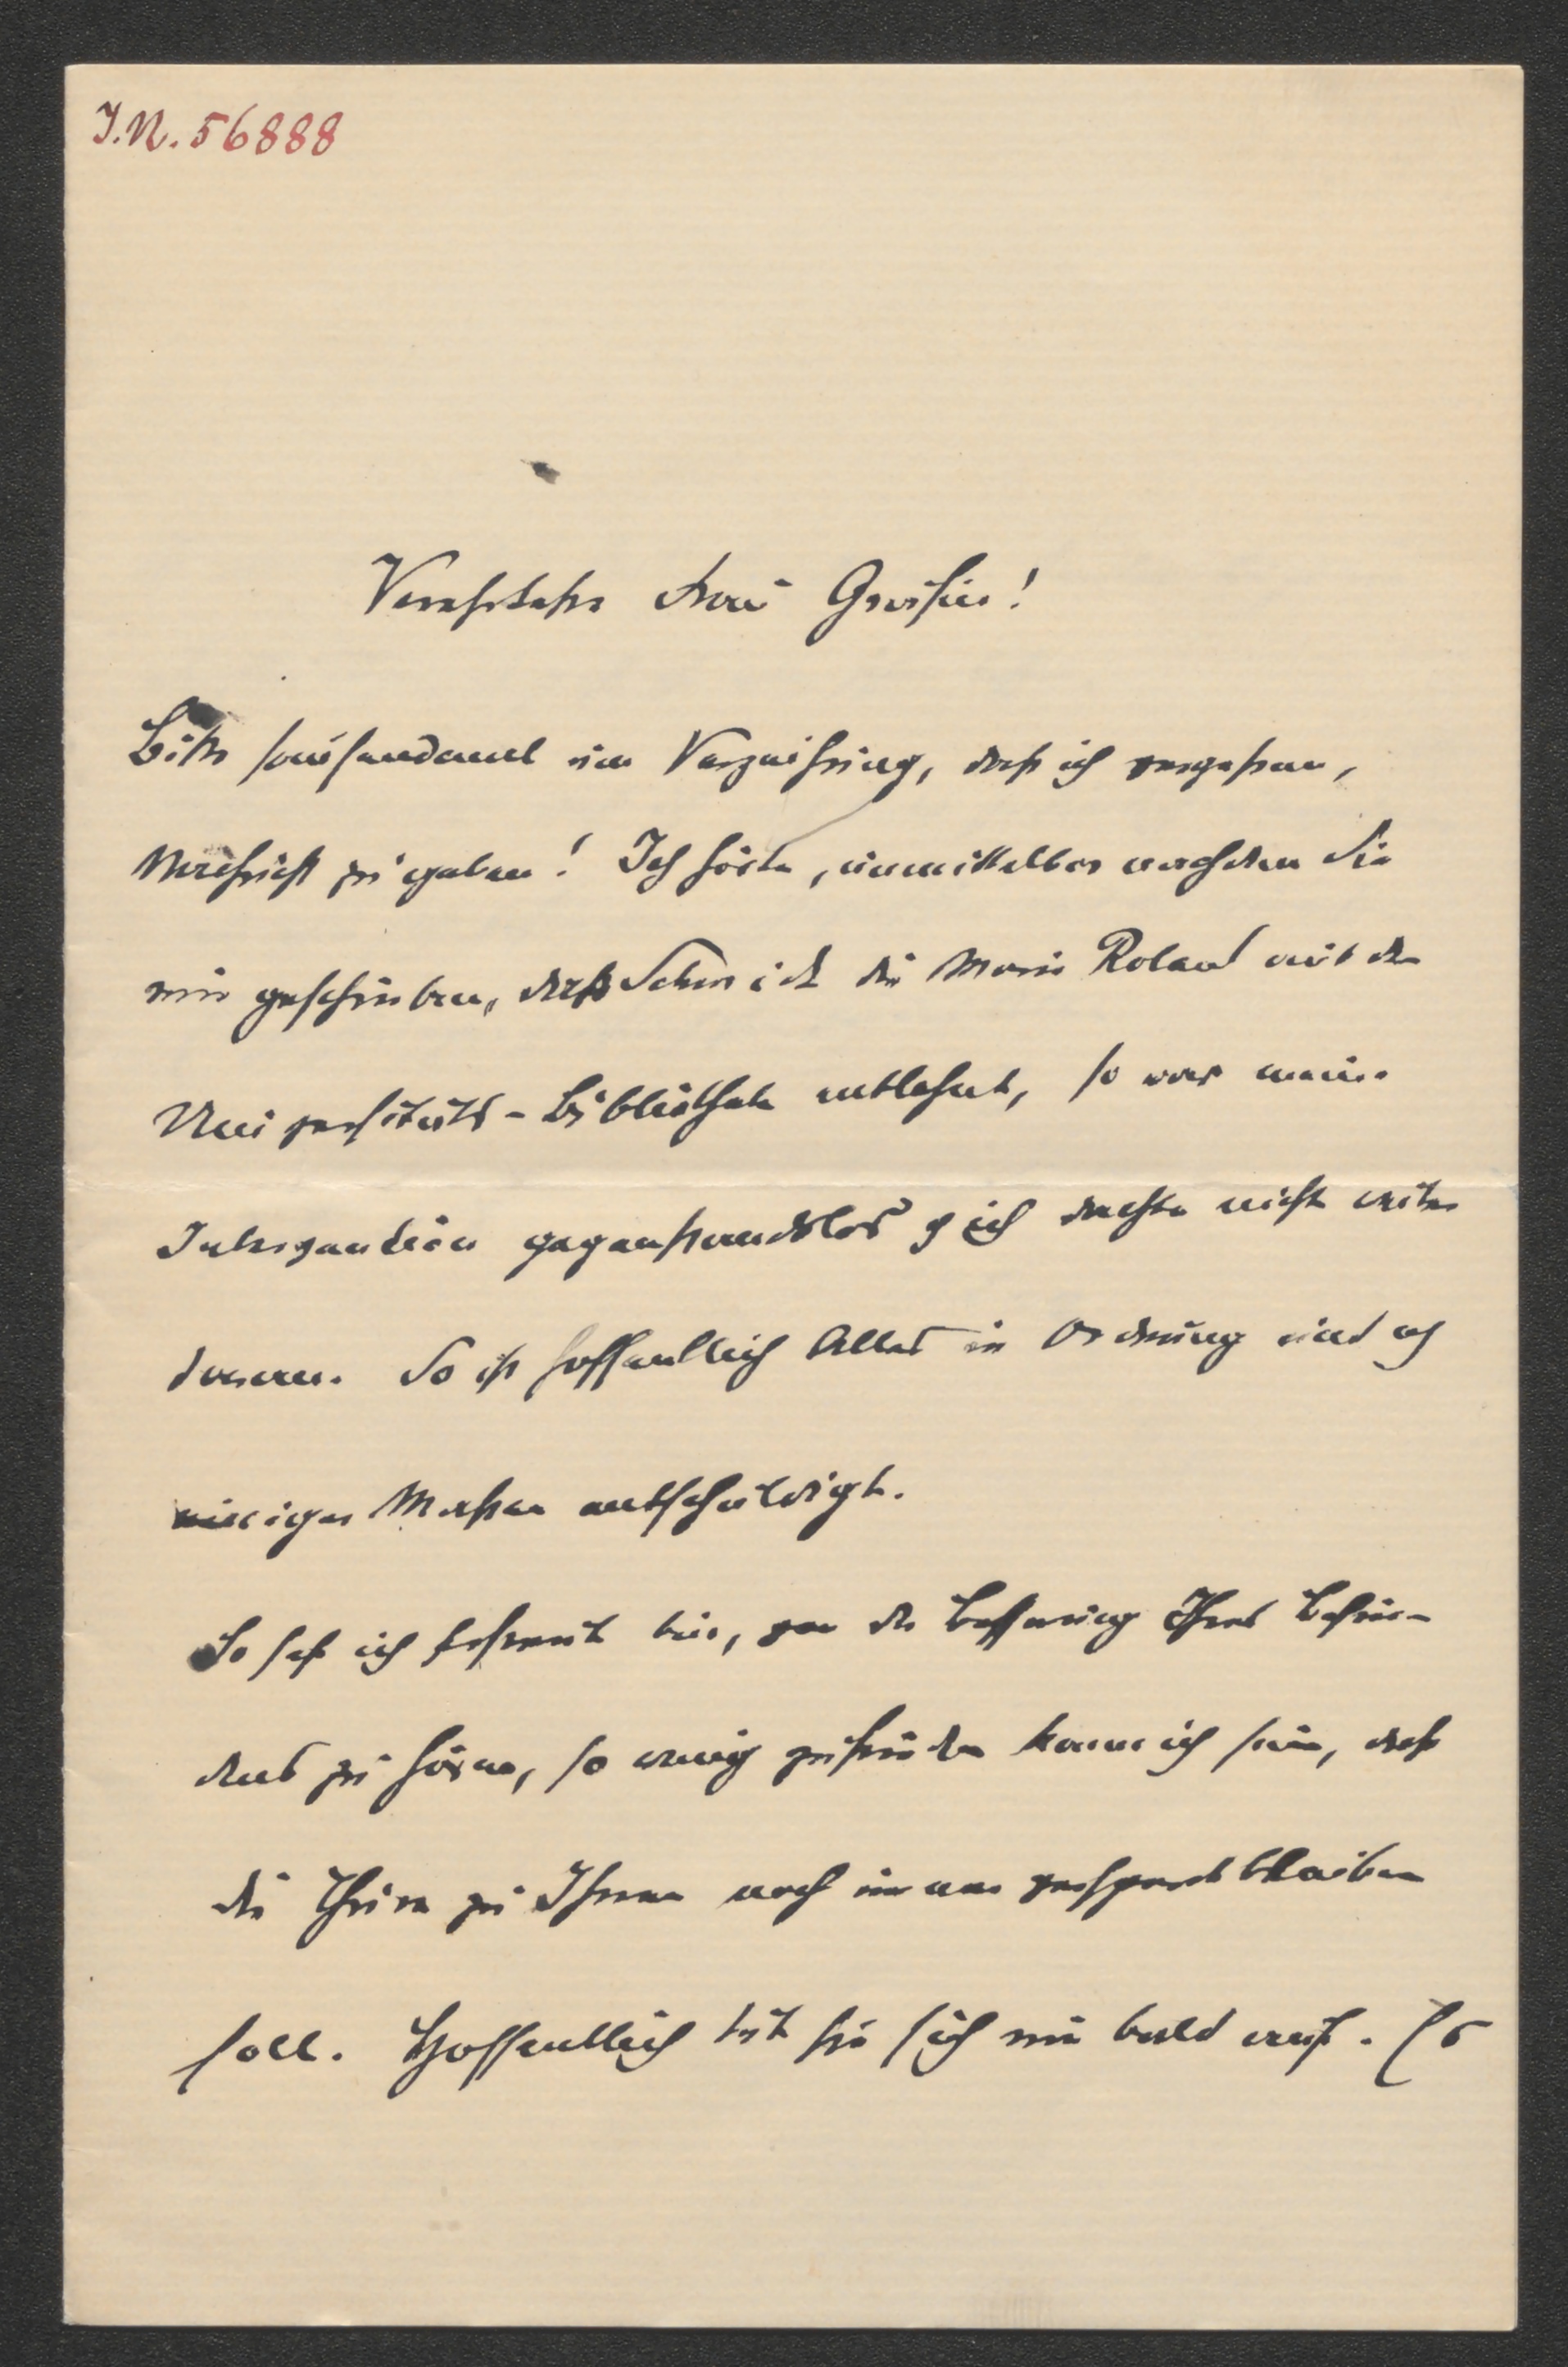 I.N. 56888
Verehrteste Frau Gräfin!
Bitte tausendmal um Verzeihung, daß ich vergessen,
Nachricht zu geben! Ich hörte, unmittelbar nachdem Sie
mir geschrieben, daß Schmidt die Marie Roland aus der
Universitäts-Bibliothek entlehnt, so war meine
Intervention gegenstandslos & ich dachte nicht weiter
daran. So ist hoffentlich Alles in Ordnung und ich
einiger Massen entschuldigt.
So sehr ich erfreut bin, von der Besserung Ihres Befin-
dens zu hören, so wenig zufrieden kann ich sein, daß
die Thüre zu Ihnen noch immer versperrt bleiben
soll. Hoffentlich tut sie sich mir bald auf. Es